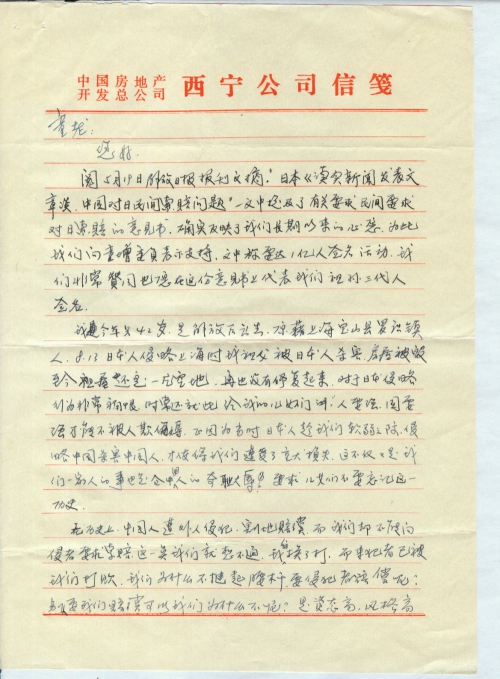 中国房地产
开发总公司 西宁公司信笺
童增:
您好.
阅5月19日解放日报报刊文摘:"日本《读卖新闻》发表文
章谈,中国对日民间索赔问题"一文中提及了有关要求民间要求
对日索赔的意见书,确实反映了我们长期以来的心愿,为此
我们向童增童员表示支持,文中称要达1亿人签名活动,我
们非常赞同也愿在这份意见书上代表我们祖孙三代人
签名.
我今年42岁,是解放后出生,原藉上海宝山县罗店镇
人,8.13日本人侵略上海时我祖父被日本人杀害,房屋被毁
至今 还是一片空地,再也没有修复起来,对于日本侵略
行为非常痛恨,时常还就此给我的儿女们讲,人要强,国要
强才能不被人欺侮,正因为当时日本人趁我们软弱之际,侵
略中国杀害中国人,才使得我们遭受了重大损失,这不仅是我
们一家人的事也是全中国人的奇耻大辱,要求儿女们不要忘记这一
历史.
在历史上,中国人遭外人侵犯,割地赔偿,而我们却不能向
侵者要求索赔这一点我们就想不通,我挨了打,而来犯者已被
我们打败,我们为什么不挺起腰杆要侵犯者赔偿呢?
要我们赔偿可以我们为什么不呢?是姿态高,风格高